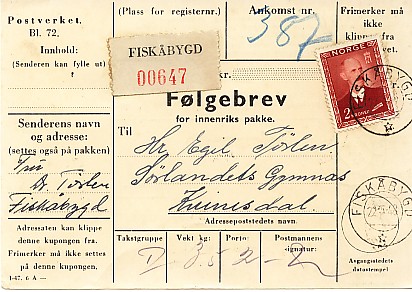 Postverket.
Bl. 72.
Innhold:
(Senderen kan fylle ut)
(Plass for registernr.)
Ankomst nr.
387
Frimerker må
ikke
FISKÅBYGD
00647
kr.
NORGE
2 KRONER
FISKÅBYGD
Følgebrev
for innenriks pakke.
Senderens navn
og adresse:
(settes også på pakken)
Fru
Fiskåbygd
Til
Hr. Egil
Sørlandets Gymnas
Kvinesdal.
Adressepoststedets navn.
Adressaten kan klippe
denne kupongen fra.
Frimerker må ikke settes
på denne kupongen.
1-47. 6 A —
Takstgruppe
Vekt kg:
Porto:
Postmannens
signatur:
D
3,5
2-
FISKÅBYGD
Avgangsstedets
datostempel